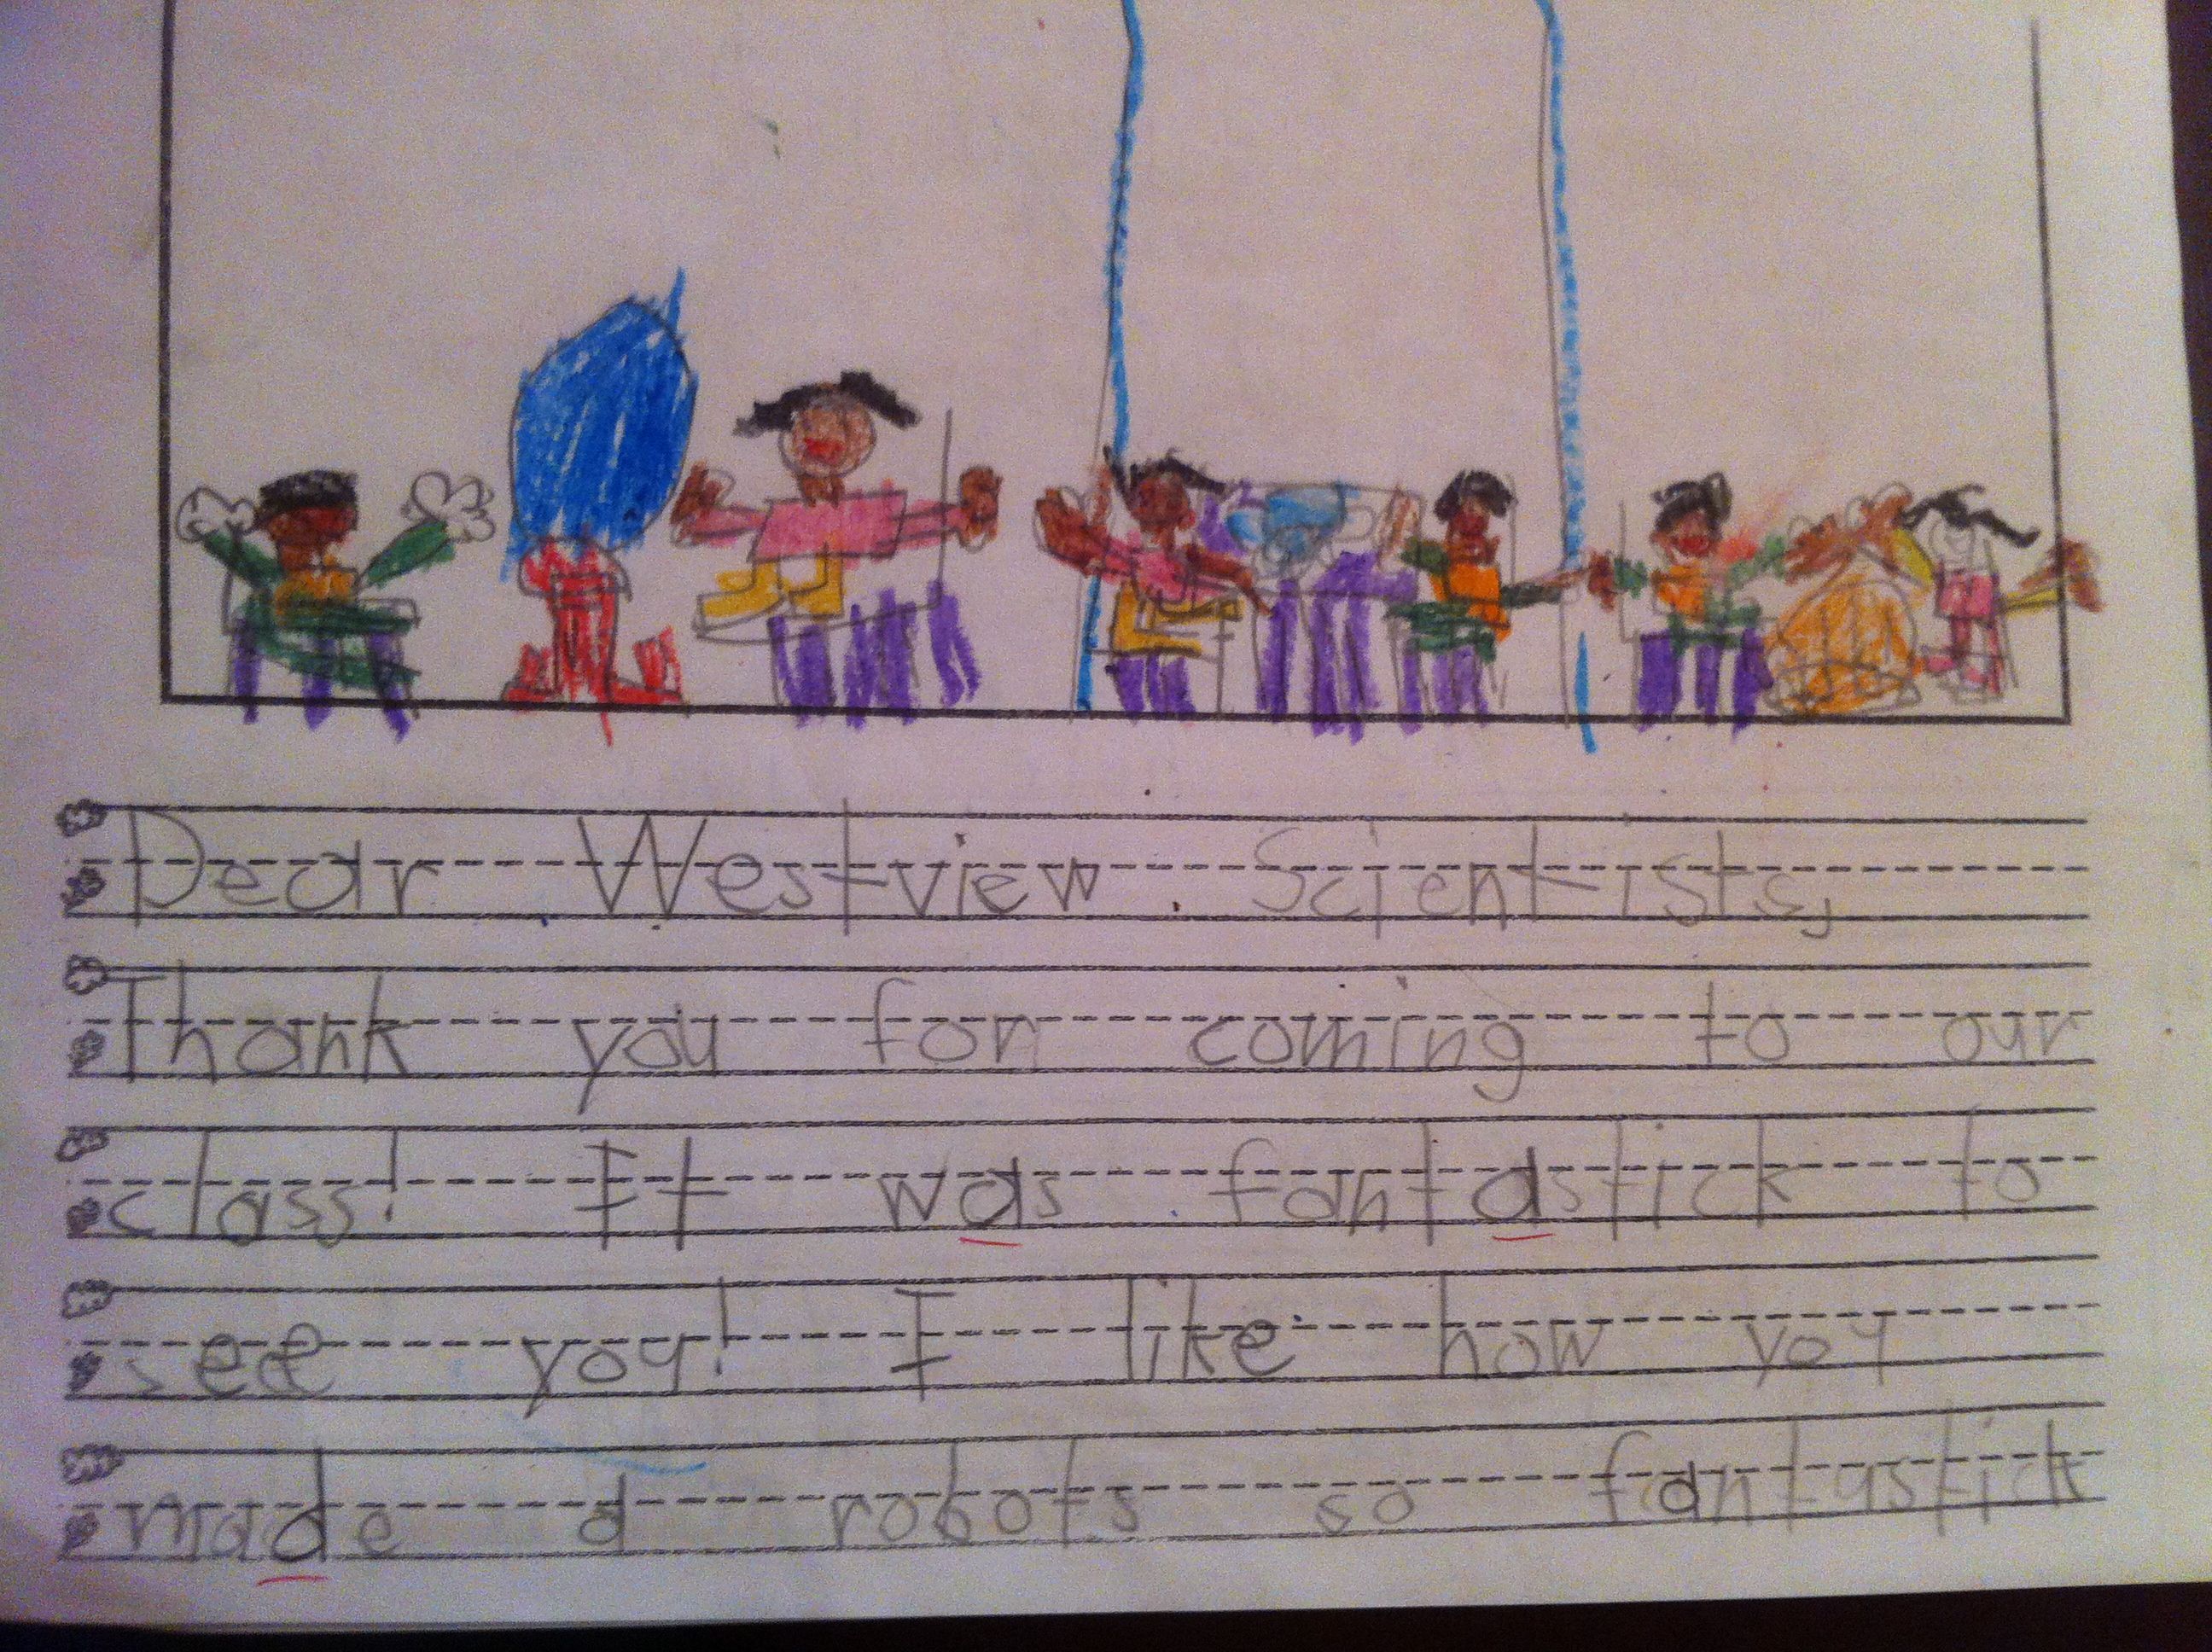 Dear Westview Scientists,
Thank you for coming to our
class! It was fantastick to
see you! I like how you
made a robots so fantastick